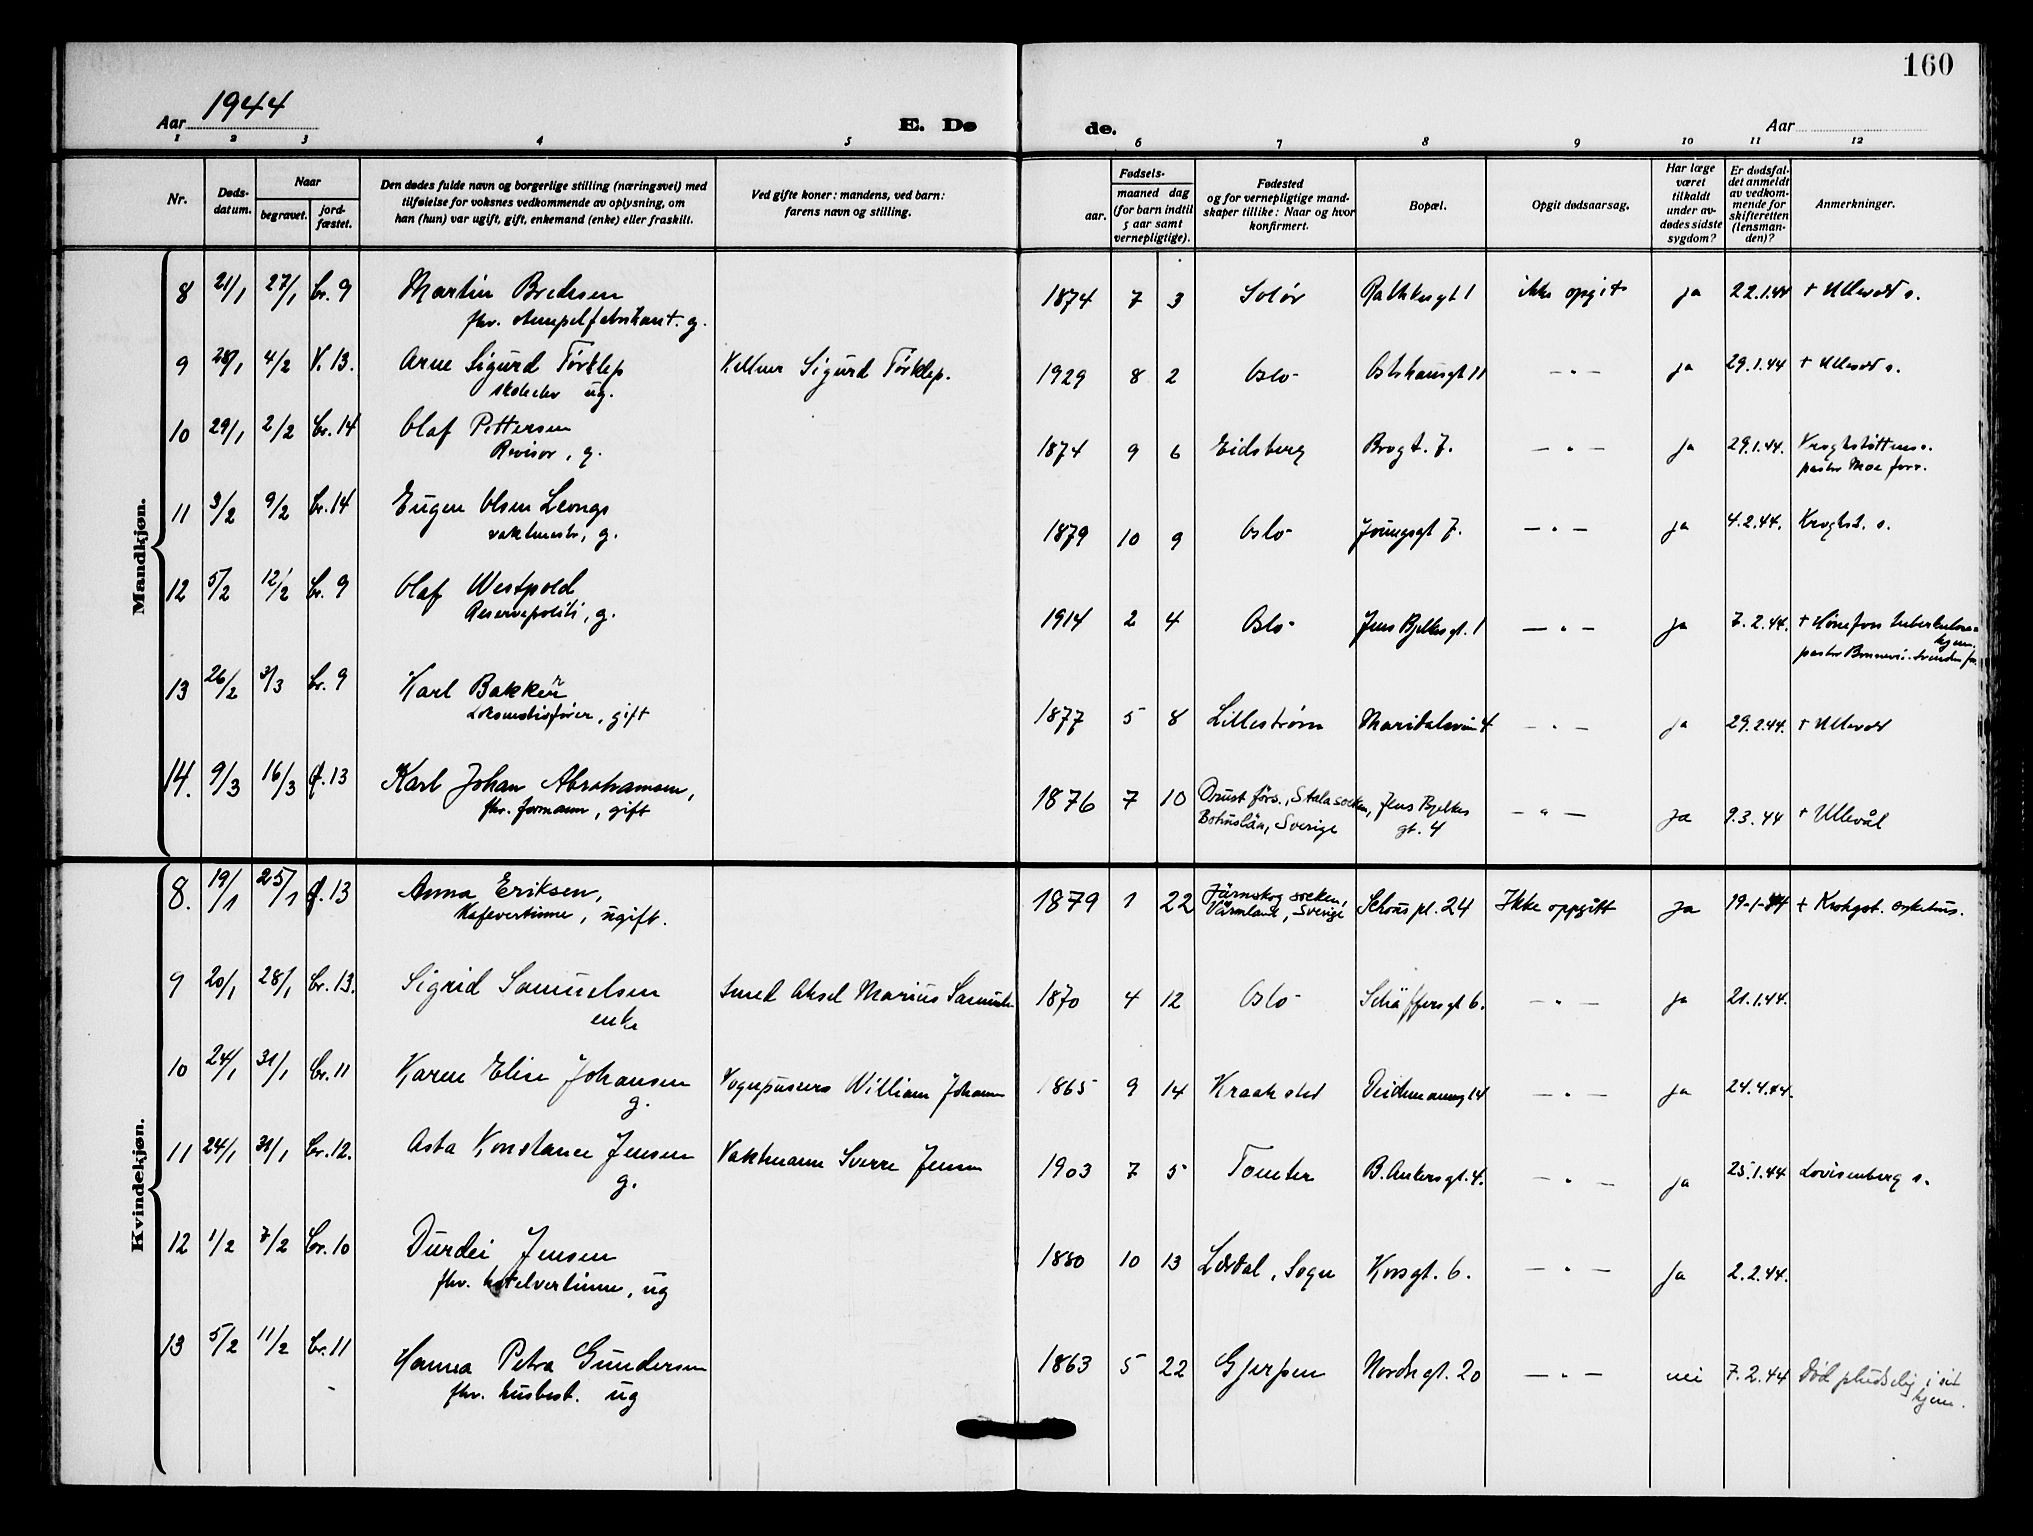 160
Aar 1944
E. Dø
de.
Aar
1 2 3 4 5 6 7 8 9 10 11 12
Nr.
Døds-
datum.
Naar
begravet.
jord-
fæstet.
Den dødes fulde navn og borgerlige stilling (næringsvei) med
tilføielse for voksnes vedkommende av oplysning, om
han (hun) var ugift, gift, enkemand (enke) eller fraskilt.
Ved gifte koner: mandens, ved barn:
farens navn og stilling.
Fødsels-
aar.
maaned dag
(for barn indtil
5 aar samt
vernepligtige).
Fødested
og for vernepligtige mand-
skaper tillike: Naar og hvor
konfirmert.
Bopæl.
Opgit dødsaarsag.
Har læge
været
tilkaldt
under av-
dødes sidste
sygdom?
Er dødsfal-
det anmeldt
av vedkom-
mende for
skifteretten
(lensman-
den)?
Anmerkninger.
Mandkjøn.
8 21/1 27/1 Cr. 9 Martin Bredesen 1874 7 3 Solør Rathkesgt 1 ikke opgit ja 22.1.44 + Ullevål s.
fhv. stempelfabrikant. g.
9 28/1 4/2 V. 13. Arne Sigurd Tørklep Kelner Sigurd Tørklep. 1929 8 2 Oslo 11 — " — ja 29.1.44 + Ullevål s.
skoleelev ug.
10 29/1 2/2 Cr. 14 Olaf Pettersen 1874 9 6 Eidsberg Brogt. 7. — " — ja 29.1.44.
Revisor, g. pastor Moe forr.
11 3/2 9/2 Cr. 14 Eugen Olsen Leongs 1879 10 9 Oslo 7. — " — ja 4.2.44. s.
vaktmester, g.
12 5/2 12/2 Cr. 9 Olaf Westpold 1914 2 4 Oslo Jens Bjelkesgt. 1 — " — ja 7.2.44. + Hønefoss tuberkulose-
hjem.
Reservepoliti, g. pastor
13 26/2 3/3 Cr. 9 Karl Bakken 1877 5 8 Lillestrøm Maridalsvn 4 — " — ja 29.2.44. + Ullevål
Lokomotivfører, gift
14. 9/3 16/3 13 Karl Johan Abrahamsen, 1876 7 10 Orust förs., Stala socken, Jens Bjelkes — " — Ja 9.3.44 + Ullevål
fhv. formann, gift Bohuslän, Sverige gt. 4
Kvindekjøn.
8. 19/1 25/1 13 Anna Eriksen, 1879 1 22 Järnskog socken, Schous pl. 24 Ikke oppgitt Ja 19-1-44 + Krohgst. sykehus.
Kafevertinne, ugift. Värmland, Sverige
9 20/1 28/1 Cr. 13. Sigrid Samuelsen Smed Aksel Marius Samuels 1870 4 12 Oslo Schäffersgt 6. — " — ja 21.1.44.
enke
10 24/1 31/1 Cr. 11 Karen Elise Johansen Vognpussers William Johansen 1865 9 14 Kraakstad Deichmannsgt 14 — " — ja 24.4.44.
g.
11 24/1 31/1 Cr. 12. Asta Konstance Jensen Vaktmann Sverre Jensen 1903 7 5 Tomter B. Ankersgt. 4. — " — ja 25.1.44 Lovisenberg s.
g.
12 1/2 7/2 Cr. 10 Durdei Jensen 1880 10 13 Lærdal, Sogn Korsgt. 6. — " — Ja 2.2.44.
fhv. hotelvertinne, ug
13 5/2 11/2 Cr. 11 Hanna Petra Gundersen 1863 5 22 Gjerpen Nordregt. 20 — " — nei 7.2.44 Død pludselig i sit
hjem.
fhv. husbest. ug